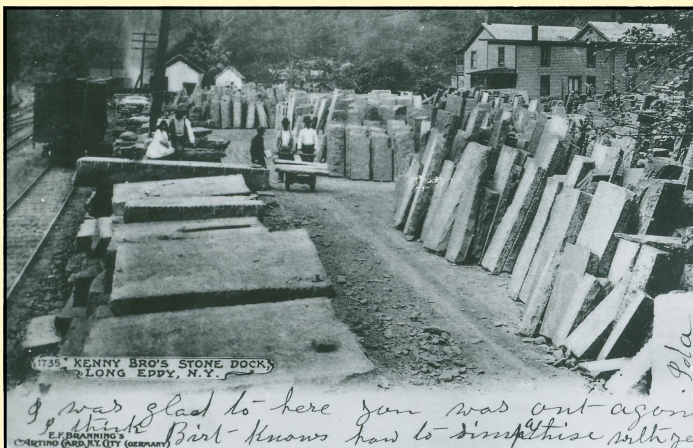 1735 KENNY BRO'S STONE DOCK,
LONG EDDY, N.Y.
Ida
I was glad to here you was out again
I think Birt Knows how to simpathise with
E.F. BRANNING'S
ARTINO CARD, N.Y. CITY (GERMANY)